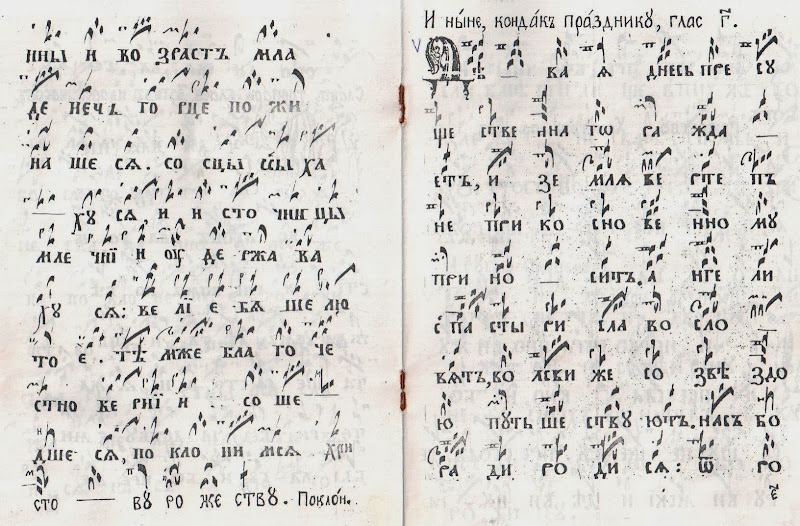 нны и во зрастъ мла
де нечъ го рце по жи
на ше ся. со сцы
ху ся, и и сто чни цы
мле чнїи и оу де ржа ва
ху ся: ве лїе бя ше лю
что е
стно ве рнїи и со ше —
дше ся, по кло ни мся хри
сто — ву ро же ству. Поклон.
И ны́не, конда́къ пра́зднику, глас г҃.
Д ѣ — ва я днесь пре су
ще стве нна то ра жда —
етъ, и зе мля ве рте пъ
не при ко сно ве нно му
при но — ситъ. а нге ли
с па сты ри сла во сло —
вятъ, во лсви же со звѣ здо
ю путь ше ству ютъ. насъ бо
ра ди ро ди ся: ѿ ро